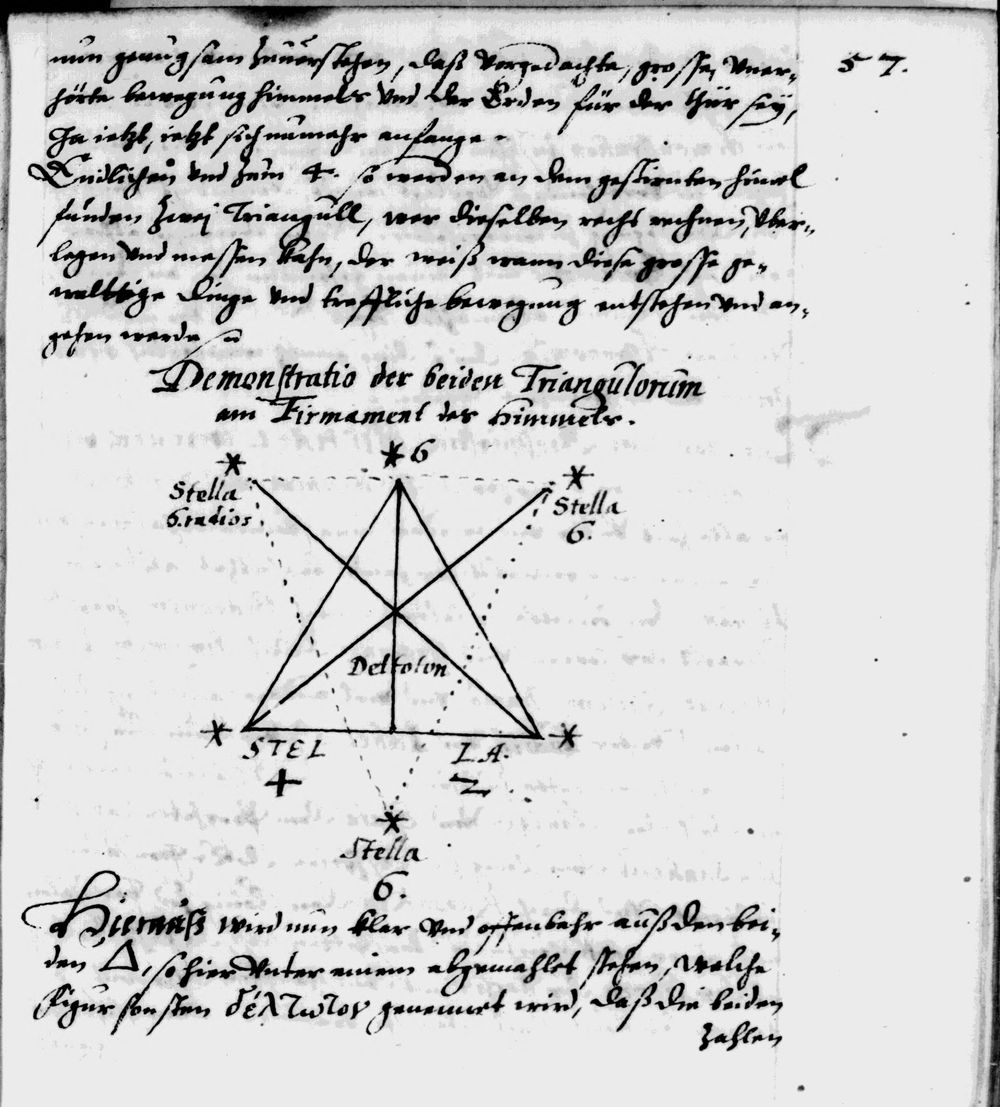 57.
nun genugsam zuuerstehen, daß vorgedachte, grosse, vner-
hörte bewegung himmels vnd der Erden für der thür seÿ,
Ja jetzt, jetzt sich numehr anfange.
Endlichen vnd zum 4. so werden an dem gestirnten himel
funden zwej Triangull, wer dieselben recht rechnen, vber-
legen vnd messen kahn, der weiß wann diese grosse ge-
walttige dinge vnd treffliche bewegung entstehen vnd an-
gehen werde
Demonstratio der beiden Triangulorum
am Firmament des Himmels.
* 6
Stella
6. radios
Stella
6.
Deltoton
STEL LA.
4 2
Stella
6.
Hierauß wird nun klar vnd offenbahr auß den bei-
den Δ, so hier vnter einem abgemahlet stehen, welche
figur sonsten δέλτωτον genennet wird, daß die beiden
zahlen